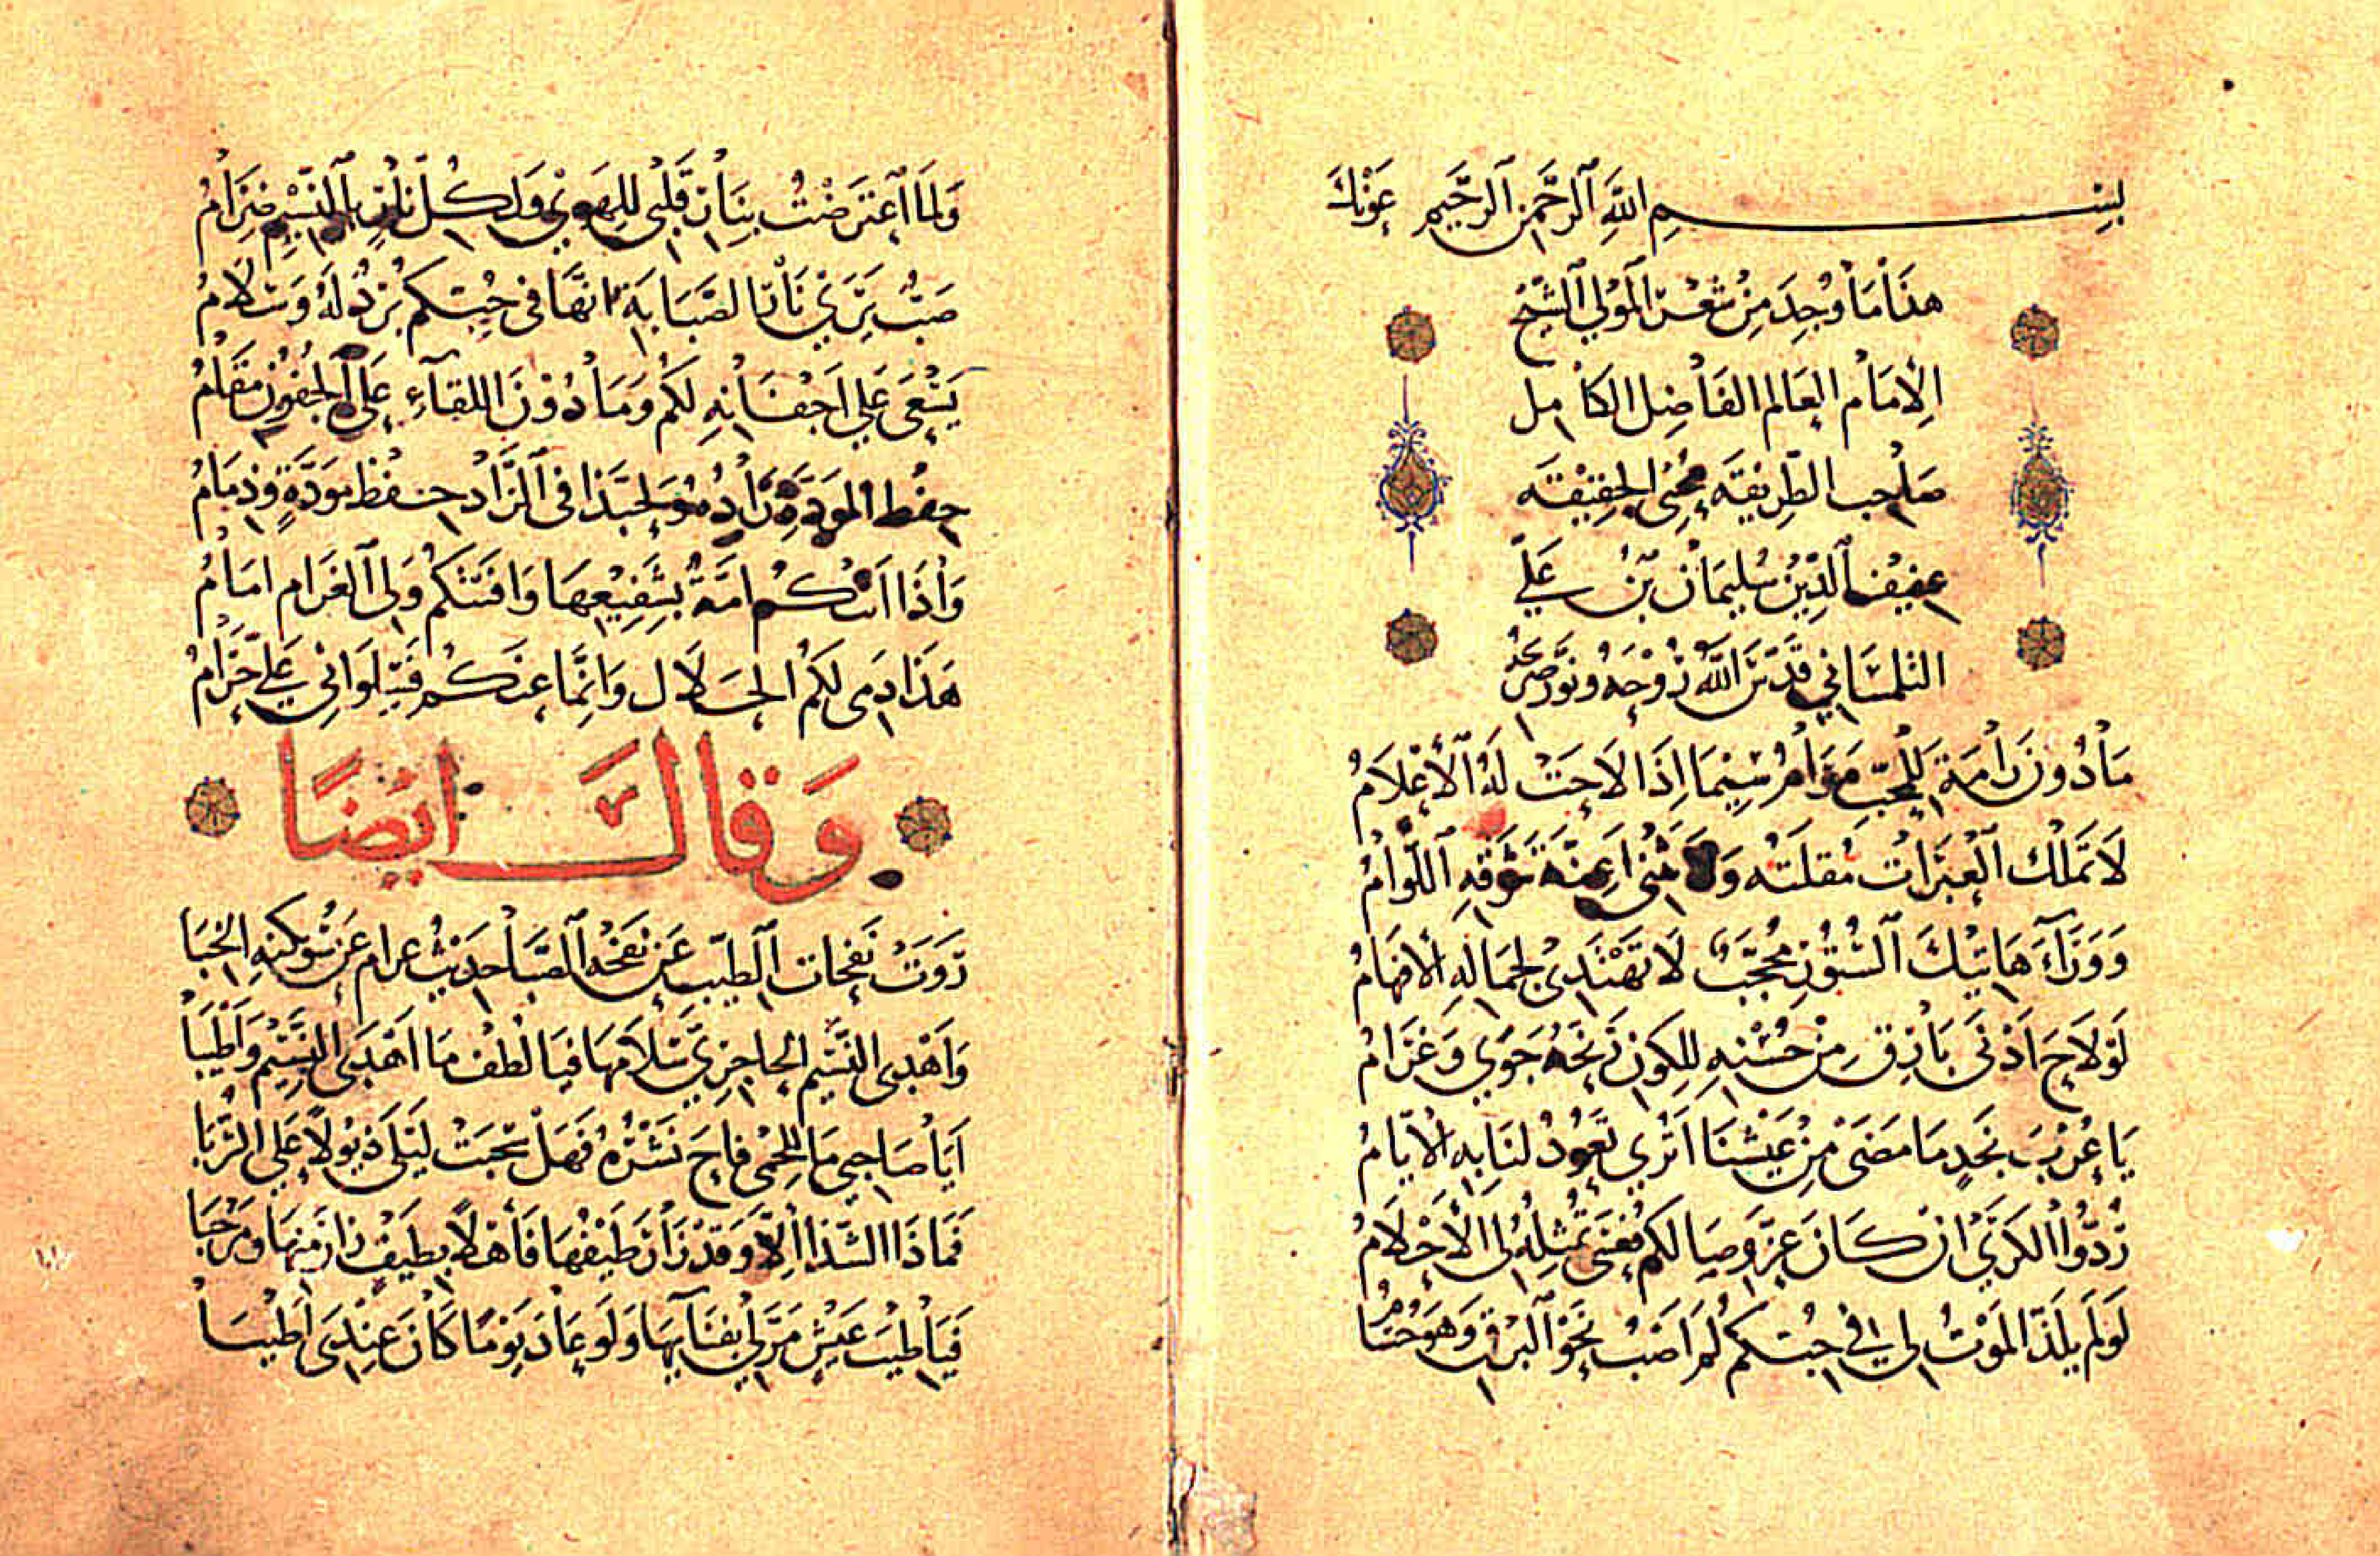 بِسْمِ اللَّهِ الرَّحْمَنِ الرَّحِيمِ عَوْنَكَ
هذَا مَا وُجِدَ مِنْ شِعْرِ الْمَوْلَى الشَّيْخِ
الإِمَامِ العَالِم الفَاضِل الكَامِل
صَاحِب الطَّرِيقَه مُحْيِى الحَقِيقَه
عَفِيفِ الدِّينِ سُلَيمَان بْن عَلِيّ
التلمْسَانِي قَدَّسَ اللَّهُ رُوْحَهُ وَنَوَّرَ ضَرِيحَهُ
مَا دُونَ رَامَةَ لِلْمُحِبِّ مَرَامُ سِيَّمَا إِذَا لاَحَتْ لَهُ الأَعْلاَمُ
لاَ تَمْلِكُ الْعَبَرَاتِ مُقلَتُه وَلاَ يثنِى اعِنَّةَ شَوْقِهِ اللُّوَّامُ
وَوَرَآءَ هَاتِيْكَ السُّتُوْرِ مُحَجَّبٌ لاَ تَهْتَدِىْ لِجَمَالِهِ الأفهَامُ
لَوْ لاَحَ اَدْنَى بَارِقٍ مِنْ حُسْنِهِ لِلكَوْنِ رَنَّحَهُ جَوًي وَغَرَامُ
يَا عُرْبَ نَجدٍ مَا مَضَى مِنْ عَيْشِنَا اَتُرَي تَعُودُ لَنَا بِهِ الأَيَّامُ
رُدُّوا الكَرَيَ انْ كَانَ عَزَّ وِصَالكُم فَعَسَى تُمثِّلُهُ لِىَ الأَحْلاَمُ
لَوْ لَم يلَذّ المَوْتُ لِى فِي حُبِّكم لَم اَصْبُ نَحْوَ البَرْقِ وَهْوَ حُسَامُ
وَلمَا اعتَرَضْتُ بِبَانِ قَلْبِى لِلهَوَي وَلِكُلّ بَانٍ بِالنَّسِيْمِ غَرَامُ
صَبٌّ يَرَيَ نَارَ الصَّبَابَةِ انَّهَا فى حُبِّكم بَرْدٌ لَهُ وَسَلاَمُ
يَسْعَى عَلَي اَجْفَانِهِ لَكُم وَمَا دُوْنَ اللقَآءِ عَلَى الجُفُوْنِ مَقَامُ
حِفْظ المَوَدَّةِ زَادُهُ وَلَحَبَّذا فى الزَّادِ حِفْظُ مَوَدَّةٍ وَذِمَامُ
وَاذَا اَتَتْكُم امَّةٌ بِشَفِيْعِهَا وَافَتْكُم وَلِىَ الغَرَام امَامُ
هَذَا دَمِى لَكُم الحَلاَل وَانَّمَا عنكُم سُلُوَانِي عَلَيَّ حَرَامُ
وَقَالَ ايْضًا
رَوَتْ نَفَحَات الطِيّبِ عَن نَفحَة الصَّبَا حَدِيْث غَرَام عَن سُوَيكِنَةِ الخِبَا
وَاَهْدَى النَّسِيْم الحَاجِرِيّ سَلاَمَهَا فيَا لُطْف مَا اَهْدَى النَّسِيْم وَاَطْيَبَا
اَيَا صَاحِبِي مَا لِلحِمَى فَاحَ نَشْرُهُ فَهَلْ سَحَبَتْ لَيْلَى ذيُولاً عَلَي الرُّبَا
فَمَا ذَا الشَّذَا اِلاَّ وَقَدْ زَارَ طَيْفُهَا فَأَهْلاً بِطَيْفٍ زَارَ مِنهَا وَمَرْحَبَا
فَيَا طِيْبَ عَيْشٍ مَرَّ لِى بفِنَآئِهَا وَلَو عَادَ يَوْمًا كَانَ عِنْدِى اَطْيَبَا